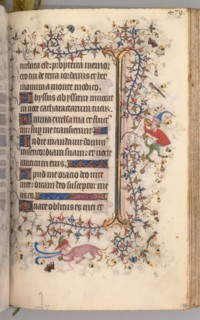 turbata est: propterea memor
ero tui de terra iordanis et her
monim a monte modico.
Abyssus abyssum invocat
in voce catharactarum tuarum.
Omnia excelsa tua et fluct
tui super me transierunt.
In die mandavit dominus
misericordiam suam: et nocte
canticum eius.
Apud me oratio deo vite
mee: dicam deo susceptor me
us es.
Quare oblitus es mei et